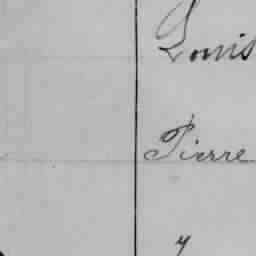 Louis
Pierre